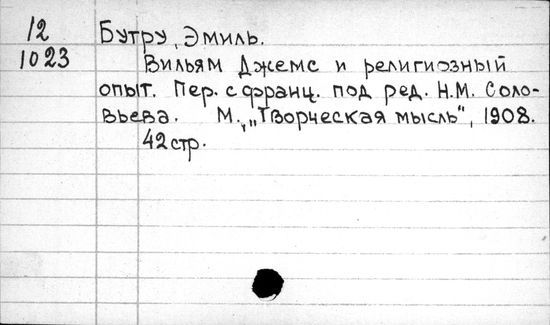 12
1023
Бутру, Эмиль.
Вильям Джемс и религиозный
опыт. Пер. с франц. под ред. Н.М. Соло-
вьева. М., „Творческая мысль", 1908.
42 стр.